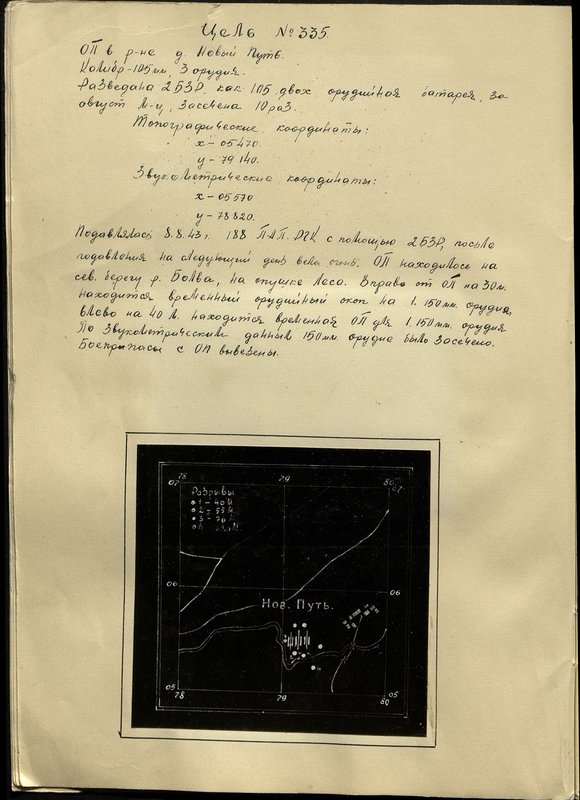 Цель № 335.
ОП в р-не д. Новый Путь.
Калибр-105 мм, 3 орудия.
Разведана 2 БЗР, как 105 двох орудийная батарея, за
август м-ц, засечена 10 раз.
Топографические координаты:
х - 05470.
у - 79140.
Звукометрические координаты:
х - 05570
у - 78820.
Подавлялась 8.8.43 г. 188 ПАП. РГК с помощью 2 БЗР, после
подавления на следующий день вела огонь. ОП находилось на
сев. берегу р. Болва, на опушке леса. Вправо от ОП на 30 м.
находится временный орудийный окоп на 1. 150 мм. орудие,
влево на 40 м. находится временная ОП для 1. 150 мм. орудия
По звукометрическим данным 150 мм. орудие было засечено.
Боеприпасы с ОП вывезены.
78 79 80
07 07
Разрывы
1 - 40 м.
2 - 55 м.
3 - 70 м.
06 06
Нов. Путь.
05 05
78 79 80